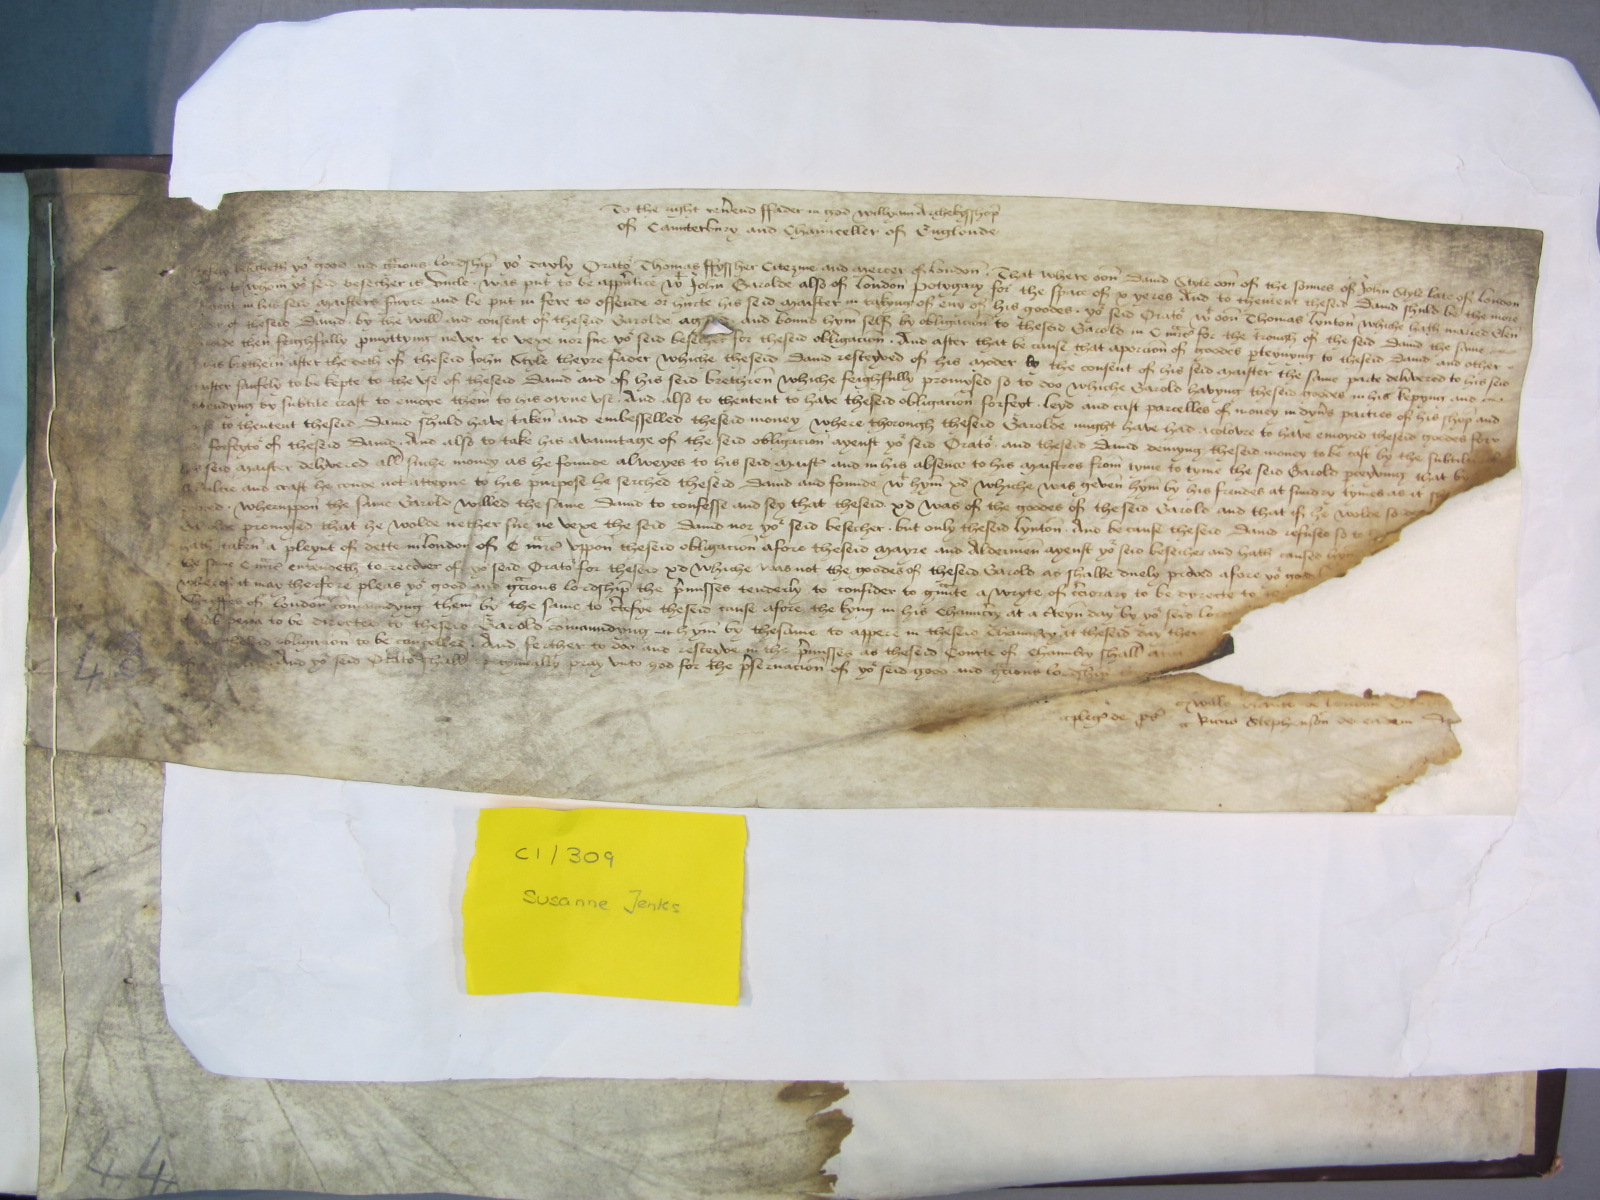 To the right rev'end ffader in god William Archebysshop
of Caunterbury and Chaunceller of Englonde
besecheth yor good and g'cious lordship yor dayly Orator Thomas ffyssher Citezine and mercer of london That where oon David Style oon of the sonnes of John Style late of london
to whom yor seid besecher is Uncle was put to be app'ntice wt John Garolde also of london potygary for the space of x yeres And to thentent theseid David shuld be the more
in his seid maisters s'vyce and be put in fere to offende or hurte his seid maister in takyng of eny of his goodes yor seid Orator wt oon Thomas lynton whiche hath maried Elen
of theseid David by the will and consent of theseid Garolde and bound hym self by obligacion to theseid Garold in C m'rcs for the trough of the seid David the same
then feighfully p'mittyng never to vexe nor sue yor seid besecher for theseid obligacion And after that be cause that aporcion of goodes p'teynyng to theseid David and other
his brethern after the deth of theseid John Style theyre fader whiche theseid David resceyved of his moder by the consent of his seid maister the same parte delivered to his seid
maister saufely to be kepte to the use of theseid David and of his seid brethren whiche feighfully promysed so to doo whiche Garold havyng theseid goodes in his kepyng and
entendyng by subtile craft to enioye them to his owne use And also to thentent to have theseid obligacion forfeyt leyd and cast parcelles of money in dyv's parties of his shop and
to thentent theseid David shuld have taken and embesselled theseid money where thorough theseid Garolde might have had acoloure to have enioyed theseid goodes
forfeytor of theseid David And also to take his avauntage of the seid obligacion ayenst yor seid Orator and theseid David demyng theseid money to be cast by the subtilte
seid maister delivered all suche money as he founde alweyes to his seid maister and in his absence to his maistres from tyme to tyme the seid Garold p'ceyvyng that by
and craft he coude not atteyne to his purpose he serched theseid David and founde wt hym xd whiche was geven hym by his frendes at sundry tymes as it
Wheruppon the same Garold willed the same David to confesse and sey that theseid xd was of the goodes of theseid Garold and that if he wolde so
Garolde promysed that he wolde nether sue ne vexe the seid David nor yor seid besecher but only theseid lynton And because theseid David refused so to
hath taken a pleynt of dette in london of C m'rcs uppon theseid obligacion afore theseid mayre and Aldermen ayenst yor seid besecher and hath caused hym
the same C m'rcs entendeth to recover of yor seid Orator for theseid xd whiche was not the goodes of theseid Garold as shalbe duely proved afore yor good
wherof it may therfore pleas yor good and g'cious lordship the p'misses tenderly to consider to g'unte a wryte of c'ciorary to be dyrecte to
Shireffes of london comaundyng them by the same to c'tefye theseid cause afore the kyng in his Chauncery at a c'teyn day by yor seid
to be directed to theseid Garold comaundyng hym by thesame to appere in theseid Chauncery at theseid day
obligacion to be cancelled And ferther to doo and resceyve in the p'misses as theseid Courte of Chauncery shall
And yor seid Orator shall pray unto god for the p'servacion of yor seid good and g'cious lordship
pleg' de ps' Will's de london
Ric'us Stephenson de eadem
43
C1/309
Susanne Jenks
44